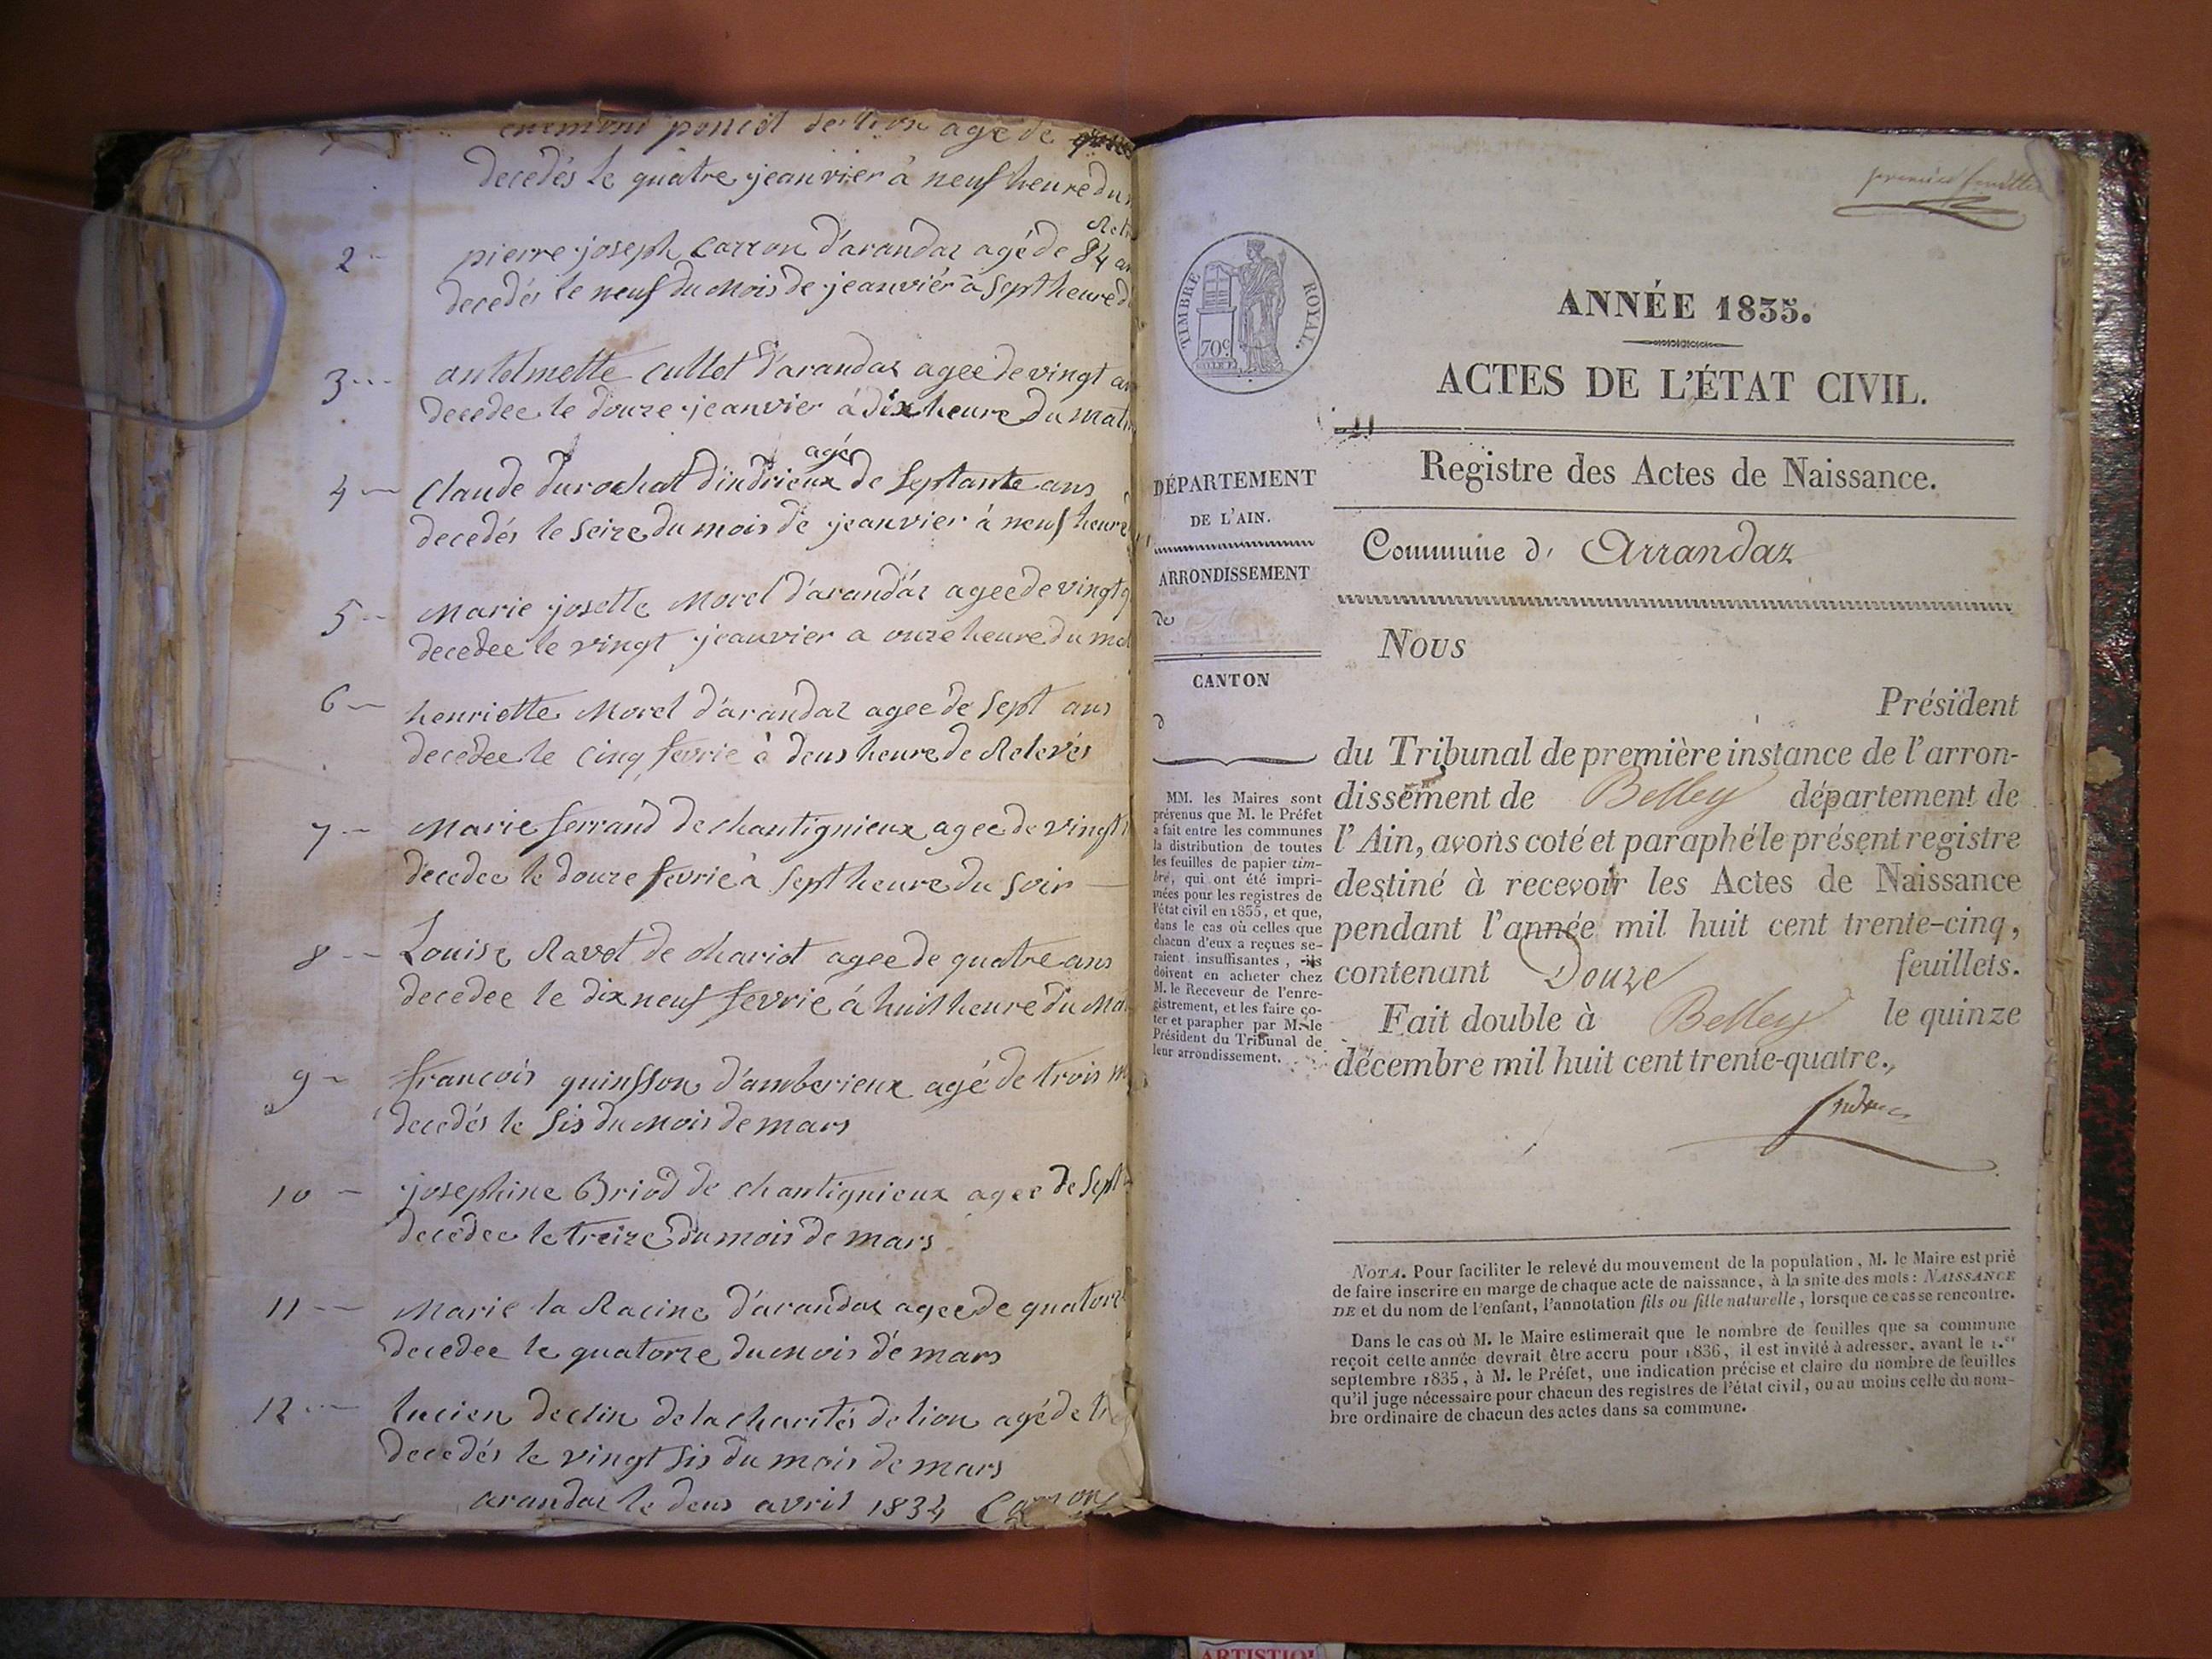 enemond poncet de lion agé de
decedés le quatre jeanvier à neuf heure du
2 - pierre joseph Carron d'arandaz agé de 84 an
decedés le neuf du mois de jeanviér à sept heure d
3 -- antelmette Cullet d'arandaz agee de vingt an
decedee le douze jeanvier à dix heure du mat
agé
4 - Claude durochat d'indrieux de septante ans
decedés le seize du mois de jeanvier à neuf heure
5 - Marie josette Morel d'arandaz agee de vingt q
decedee le vingt jeanvier a onze heure du ma
6 - henriette Morel d'arandaz agee de sept ans
decedee le cinq fevrie à deus heure de Relevés
7 - Marie ferrand de chantignieux agee de vingt
decedee le douze fevrie à sept heure du soir —
8 - Louise Ravot de chariot agee de quatre ans
decedee le dix neuf fevrie à huit heure du Ma
9 - francois quinsson d'amberieux agé de trois m
decedés le sis du mois de mars
10 - josephine Briod de chantignieux agee de sept
decedee le treize du mois de mars
11 -- Marie la Racine d'arandaz agee de quatorz
decedee le quatorze du mois de mars
12 -- lucien declin de la charités de lion agé de tr
decedés le vingt sis du mois de mars
arandaz le deus avril 1834 Carron
premier feuillet
TIMBRE ROYAL.
70c
ANNÉE 1835.
ACTES DE L'ÉTAT CIVIL.
Registre des Actes de Naissance.
DÉPARTEMENT
DE L'AIN.
ARRONDISSEMENT
de
CANTON
d
MM. les Maires sont
prévenus que M. le Préfet
a fait entre les communes
la distribution de toutes
les feuilles de papier tim-
bré, qui ont été impri-
mées pour les registres de
l'état civil en 1835, et que,
dans le cas où celles que
chacun d'eux a reçues se-
raient insuffisantes, ils
doivent en acheter chez
M. le Receveur de l'enre-
gistrement, et les faire co-
ter et parapher par M. le
Président du Tribunal de
leur arrondissement.
Commune d' Arrandaz
Nous
Président
du Tribunal de première instance de l'arron-
dissement de Belley département de
l'Ain, avons coté et paraphé le présent registre
destiné à recevoir les Actes de Naissance
pendant l'année mil huit cent trente-cinq,
contenant Douze feuillets.
Fait double à Belley le quinze
décembre mil huit cent trente-quatre.
NOTA. Pour faciliter le relevé du mouvement de la population, M. le Maire est prié
de faire inscrire en marge de chaque acte de naissance, à la suite des mots: NAISSANCE
DE et du nom de l'enfant, l'annotation fils ou fille naturelle, lorsque ce cas se rencontre.
Dans le cas où M. le Maire estimerait que le nombre de feuilles que sa commune
reçoit cette année devrait être accru pour 1836, il est invité à adresser, avant le 1.er
septembre 1835, à M. le Préfet, une indication précise et claire du nombre de feuilles
qu'il juge nécessaire pour chacun des registres de l'état civil, ou au moins celle du nom-
bre ordinaire de chacun des actes dans sa commune.